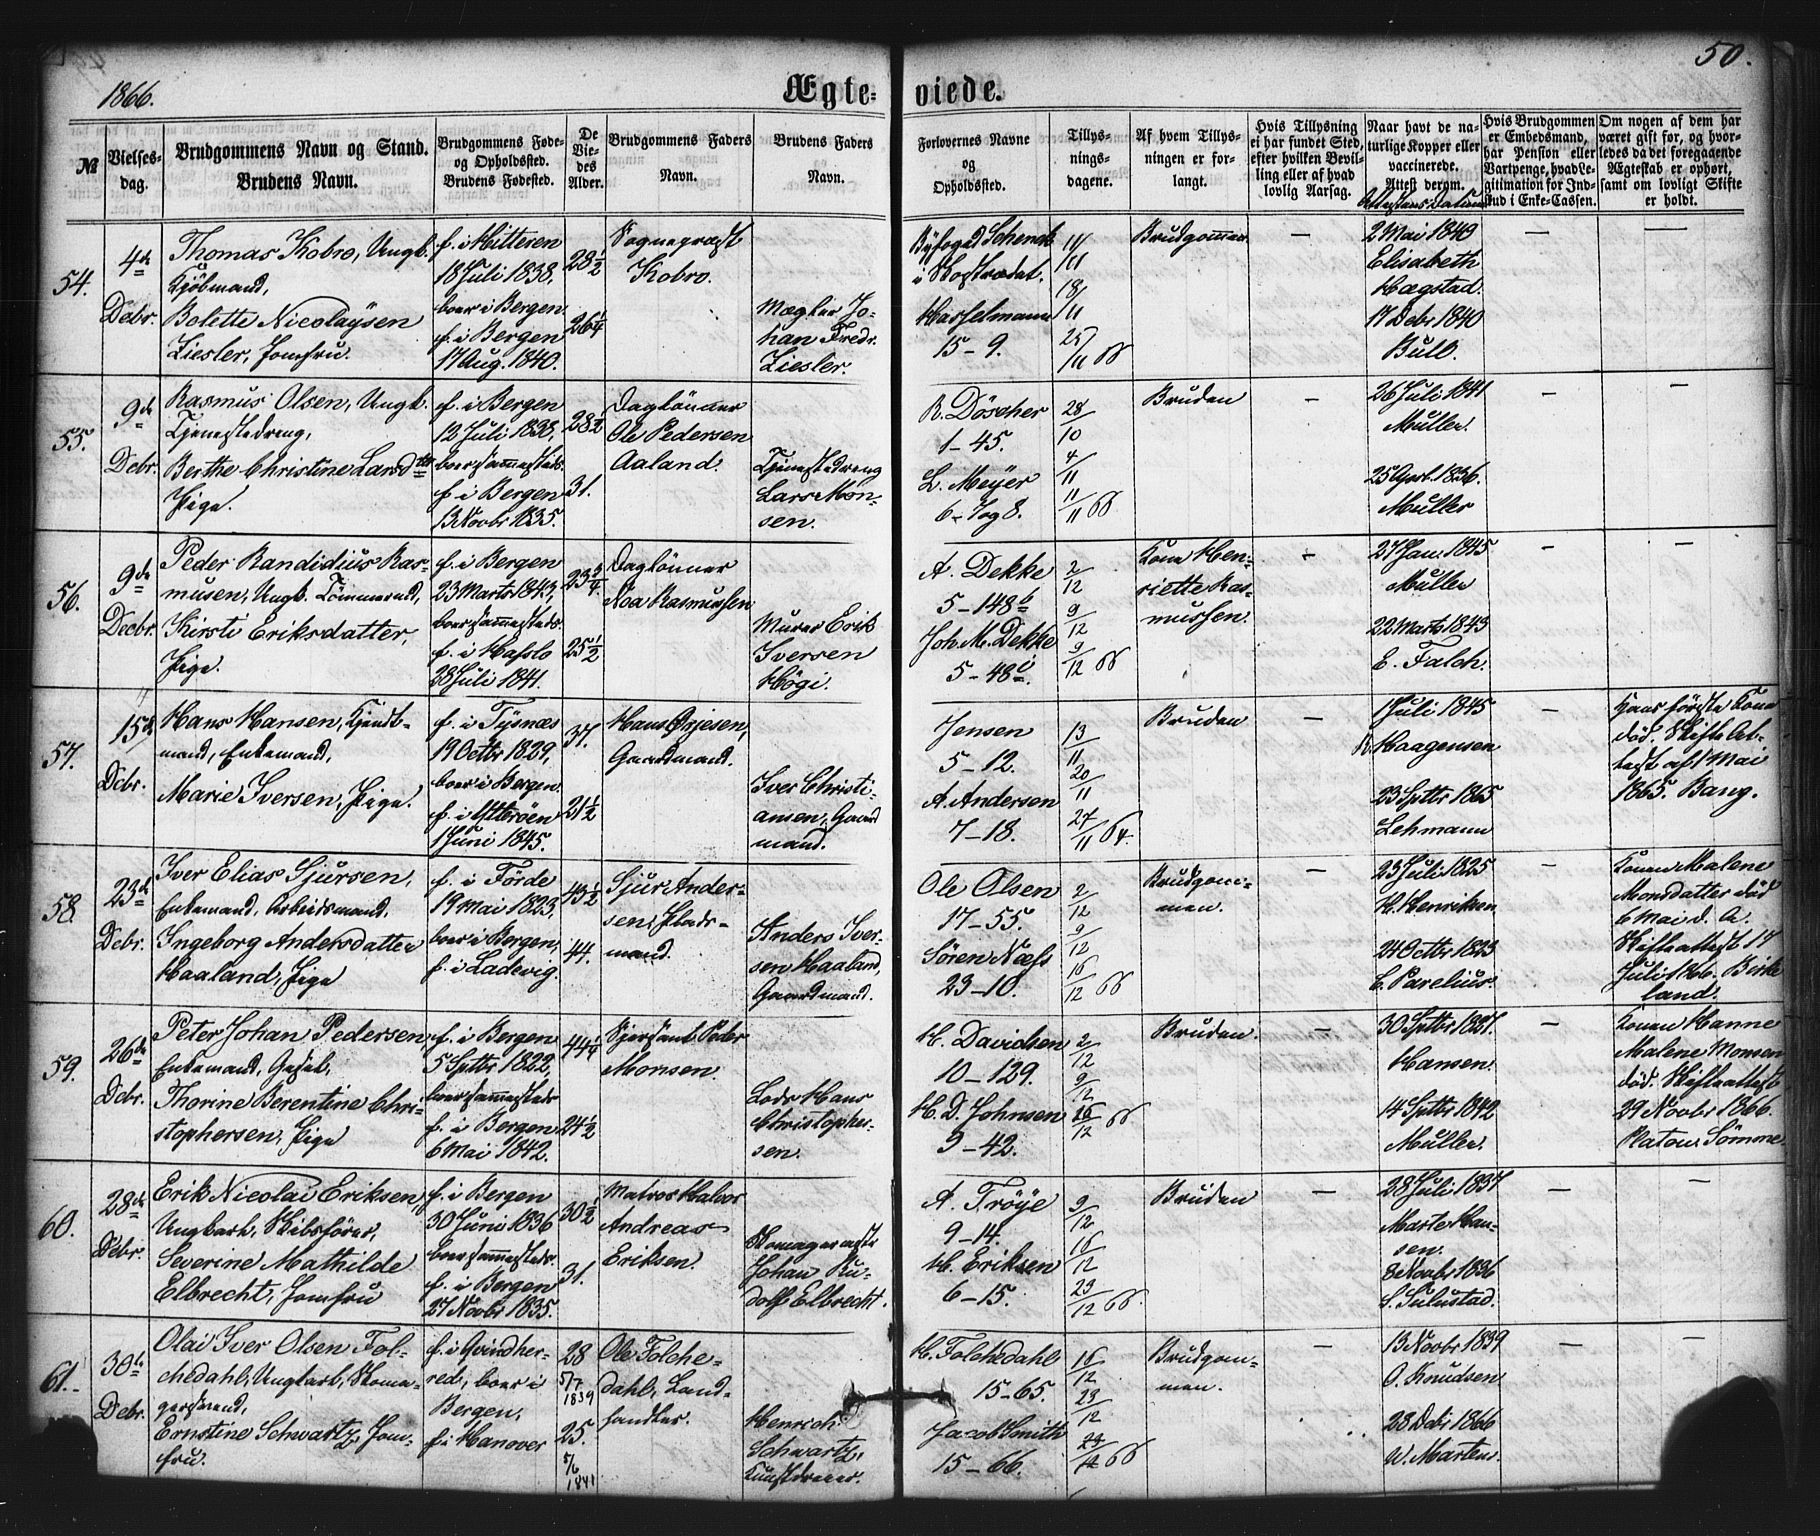 1866.
Ægte-
viede.
50.
№
Vielses-
dag.
Brudgommens Navn og Stand.
Brudens Navn.
Brudgommens Føde-
og Opholdssted.
Brudens Fødested.
De
Vie-
des
Alder.
Brudgommens Faders
Navn.
Brudens Faders
Navn.
Forlovernes Navne
og
Opholdssted.
Tillys-
nings-
dagene.
Af hvem Tillys-
ningen er for-
langt.
Hvis Tillysning
ei har fundet Sted,
efter hvilken Bevil-
ling eller af hvad
lovlig Aarsag.
Naar havt de na-
turlige Kopper eller
vaccinerede.
Attest derom.
Attestens Datum
Hvis Brudgommen
er Embedsmand,
har Pension eller
Vartpenge, hvad Le-
gitimation for Ind-
skud i Enke-Cassen.
Om nogen af dem har
været gift før, og hvor-
ledes da det foregaaende
Ægteskab er ophørt,
samt om lovligt Skifte
er holdt.
54.
4de
Debr.
Thomas Kobro, Ungk.
Kjöbmand,
Bolette Nicolaysen
Ziesler, Jomfru.
f. i Hitteren
18 Juli 1838,
boer i Bergen.
f. i Bergen
17 Aug. 1840.
28 1/2
26 1/4
Sognepræst
Kobro.
Mægler Jo-
han Fredr.
Ziesler.
Byfoged Schenck
i Skostrædet.
Hasselmann
15-9.
11/
/11
18/
/11
25/
/11 66
Brudgommen
—
2 Mai 1840
Elisabeth
Hægstad.
17 Debr 1840
Bull.
—
—
55.
9de
Debr.
Rasmus Olsen, Ungk.
Tjenestedreng,
Berthe Christine Larsdtter
Pige.
f. i Bergen
12 Juli 1838,
boer sammesteds.
f. i Bergen
13 Novbr 1835.
28 1/2
31.
Daglönner
Ole Pedersen
Aaland.
Tjenestedreng
Lars Mon-
sen.
R. Döscher
1-45.
L. Meyer
6-7 og 8.
28/10
4/11
11/11 66
Bruden
—
26 Juli 1841
Müller.
25 April 1836.
Müller
—
—
56.
9de
Decbr.
Peder Randidius Ras-
musen, Ungk. Tömmermd,
Kirsti Eriksdatter,
Pige.
f. i Bergen
23 Marts 1843,
boer sammesteds.
f. i Hafslo
28 Juli 1841.
23 3/4
25 1/2
Daglönner
Noa Rasmussen
Murer Erik
Iversen
Högi.
A. Dekke
5-148 b
Joh. M. Dekke
5-48 i.
2/12
9/12
9/12 66
Kone Hen-
riette Ras-
mussen.
—
27 Jan. 1845
Müller
22 Marts 1843
E. Falch.
—
—
57.
15de
Debr.
Hans Hansen, Kjendt-
mand, Enkemand,
Marie Iversen, Pige.
f. i Tysnæs
19 Octbr 1829,
boer i Bergen.
f. i Ytteröen
1 Juni 1845.
37.
21 1/2
Hans Örjesen,
Gaardmand.
Iver Christi-
ansen, Gaard
mand.
Jensen
5-12.
A. Andersen
7-18.
13/11
20/11
27/11 64.
Bruden
—
1 Juli 1845
R. Haagensen
23 Sptbr 1865
Lehmann
—
Hans förste Kone
död. Skifte At-
test af 1 Mai
1865. Bang.
58.
23de
Debr.
Iver Elias Sjursen,
Enkemand, Arbeidsmand,
Ingeborg Andersdatter
Haaland, Pige
f. i Förde
19 Mai 1823,
boer i Bergen,
f. i Ladevig.
43 1/2
44.
Sjur Ander-
sen, Plads-
mand.
Anders Iver-
sen Haaland,
Gaardmand.
Ole Olsen
17-55.
Sören Næss
23-10.
2/12
9/12
16/12 66
Brudgom-
men.
—
23 Juli 1825
H. Henriksen
24 Octbr 1823
C. Parelius.
—
Konen Malene
Monsdatter död
6 Mai d. A.
Skifteattest 17
Juli 1866. Birke
land.
59.
26de
Debr.
Peter Johan Pedersen,
Enkemand, Gesel,
Thorine Berentine Chri-
stophersen, Pige
f. i Bergen
5 Sptbr 1822,
boer sammesteds
f. i Bergen
6 Mai 1842.
44 1/4
24 1/2
Sjersant Peder
Monsen.
Lods Hans
Christopher-
sen.
H. Davidsen
10-129.
H. D. Johnsen
9-42.
2/12
9/12
16/12 66
Bruden.
—
30 Sptbr 1827.
Hansen.
14 Sptbr 1842
Müller.
—
Konen Hanne
Malene Monsen
död. Skifteattest
29 Novbr 1866.
Platou. Sömme.
60.
28de
Debr.
Erik Nicolai Eriksen,
Ungkarl, Skibsförer,
Severine Mathilde
Elbrecht, Jomfru
f. i Bergen
30 Juni 1836
boer sammesteds.
f. i Bergen
27 Novbr 1835.
30 1/2
31.
Matros Halvor
Andreas
Eriksen.
Skomagermestr
Johan Ru-
dolf Elbrecht.
A. Tröye
9-14.
H. Eriksen
6-15.
9/12
16/12
23/12 66.
Bruden
—
28 Juli 1837
Marte Han-
sen.
8 Novbr 1836
S. Sulustad.
—
—
61.
30te
Debr.
Olai Iver Olsen Fol-
chedahl, Ungkarl, Skoma-
gersvend,
Ernstine Schwartz, Jom-
fru.
f. i Qvindher-
red, boer i
Bergen,
f. i Hanover
28
5/7
1839
25.
5/6
1841
Ole Folche-
dahl, Land-
handler.
Henrich
Schwartz,
Kunstdreier.
H. Folchedahl
15-65.
Jacob Smith
15-66.
16/12
23/12
23/12 66
Brudgom-
men.
—
13 Novbr 1839
O. Knudsen
28 Debr 1866
W. Martens.
—
—